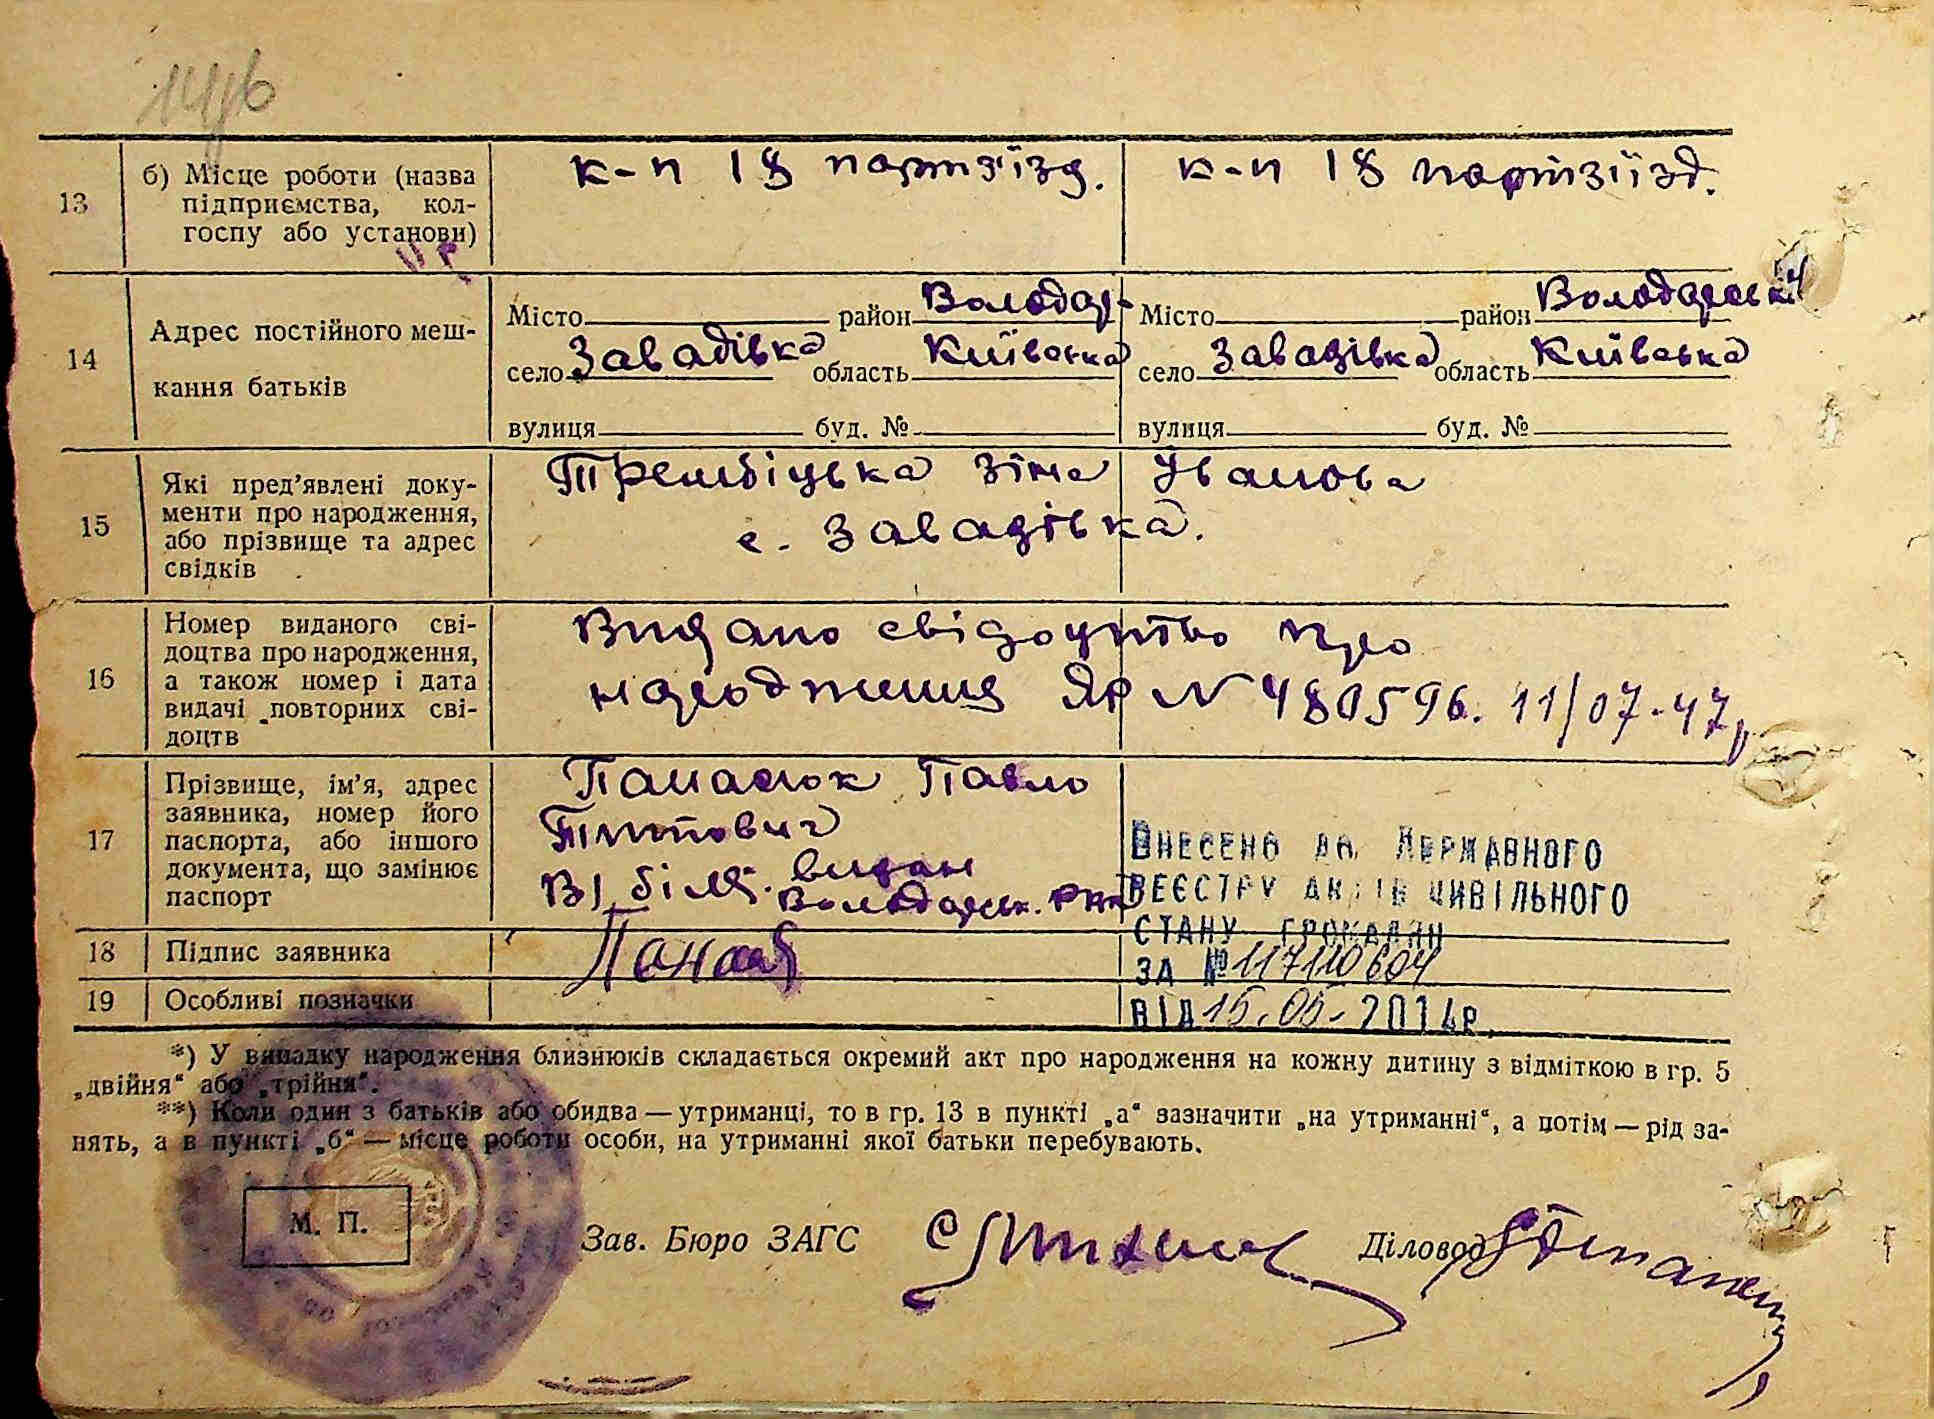 13 б) Місце роботи (назва підприємства, кол-госпу або установи)
к-п 18 портз'їзд. к-п 18 портзіїзд.
14 Адрес постійного меш-
кання батьків
Місто район Володар- Місто район Володарський
село Завадівка область Київська село Завадівка область Київська
вулиця буд. № вулиця буд. №
15 Які пред'явлені доку-
менти про народження,
або прізвище та адрес
свідків
Трембіцька Зіна Іванова
с. Завадівка.
16 Номер виданого сві-
доцтва про народження,
а також номер і дата
видачі повторних сві-
доцтв
Видано свідоцтво про
народження ЯР N 480596. 11/07-47р
17 Прізвище, ім'я, адрес
заявника, номер його
паспорта, або іншого
документа, що замінює
паспорт
Панасюк Павло
Тітович
В/ біл. видан
Володарськ.
Внесено до Державного
реєстру актів цивільного
стану громадян
за № 117110604
від 15.05.2014р.
18 Підпис заявника
19 Особливі позначки
*) У випадку народження близнюків складається окремий акт про народження на кожну дитину з відміткою в гр. 5
„двійня“ або „трійня“.
**) Коли один з батьків або обидва — утриманці, то в гр. 13 в пункті „а“ зазначити „на утриманні“, а потім — рід за-
нять, а в пункті „б“ — місце роботи особи, на утриманні якої батьки перебувають.
М. П. Зав. Бюро ЗАГС Діловод